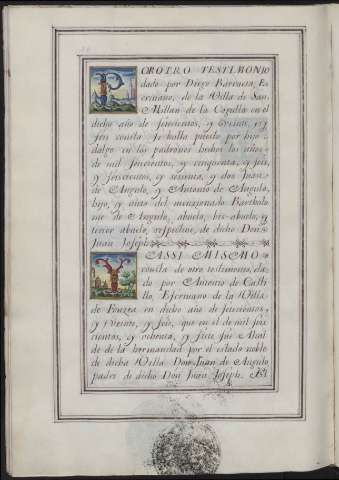 POR OTRO TESTIMONIO
dado por Diego Barrueta, Es
crivano, de la Villa de San
Millan de la Cogolla en el
dicho año de setecientos, y treinta, y
seis consta se halla puesto por hijo
dalgo en los padrones hechos los años
de mil seiscientos, y cinquenta, y seis,
y seiscientos, y sesenta, y don Juan
de Angulo, y Antonio de Angulo,
hijo, y nieto del mencionado Bartholo
me de Angulo, abuelo, bis-abuelo, y
tercer abuelo, respective, de dicho Don
Juan Joseph
Y ASSI MISMO
consta de otro testimonio, da
do por Antonio de Casti
llo, Escrivano de la Villa
de en dicho año de setecientos,
y y seis, que en el de mil seis
cientos, y ochenta, y siete fue Alcal
de de la hermandad por el estado noble
de dicha Villa Don Juan de Angulo
padre de dicho Don Juan Joseph.